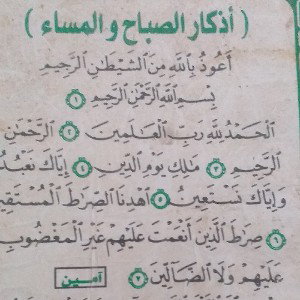 ( أذكار الصباح و المساء )
أَعُوذُ بِاللَّهِ مِنَ الشَّيْطَٰنِ الرَّجِيمِ
بِسْمِ اللَّهِ الرَّحْمَٰنِ الرَّحِيمِ ١
الْحَمْدُ لِلَّهِ رَبِّ الْعَٰلَمِينَ ٢ الرَّحْمَٰنِ
الرَّحِيمِ ٣ مَٰلِكِ يَوْمِ الدِّينِ ٤ إِيَّاكَ نَعْبُدُ
وَإِيَّاكَ نَسْتَعِينُ ٥ اهْدِنَا الصِّرَٰطَ الْمُسْتَقِيمَ
٦ صِرَٰطَ الَّذِينَ أَنْعَمْتَ عَلَيْهِمْ غَيْرِ الْمَغْضُوبِ
عَلَيْهِمْ وَلَا الضَّالِّينَ ٧ آمين